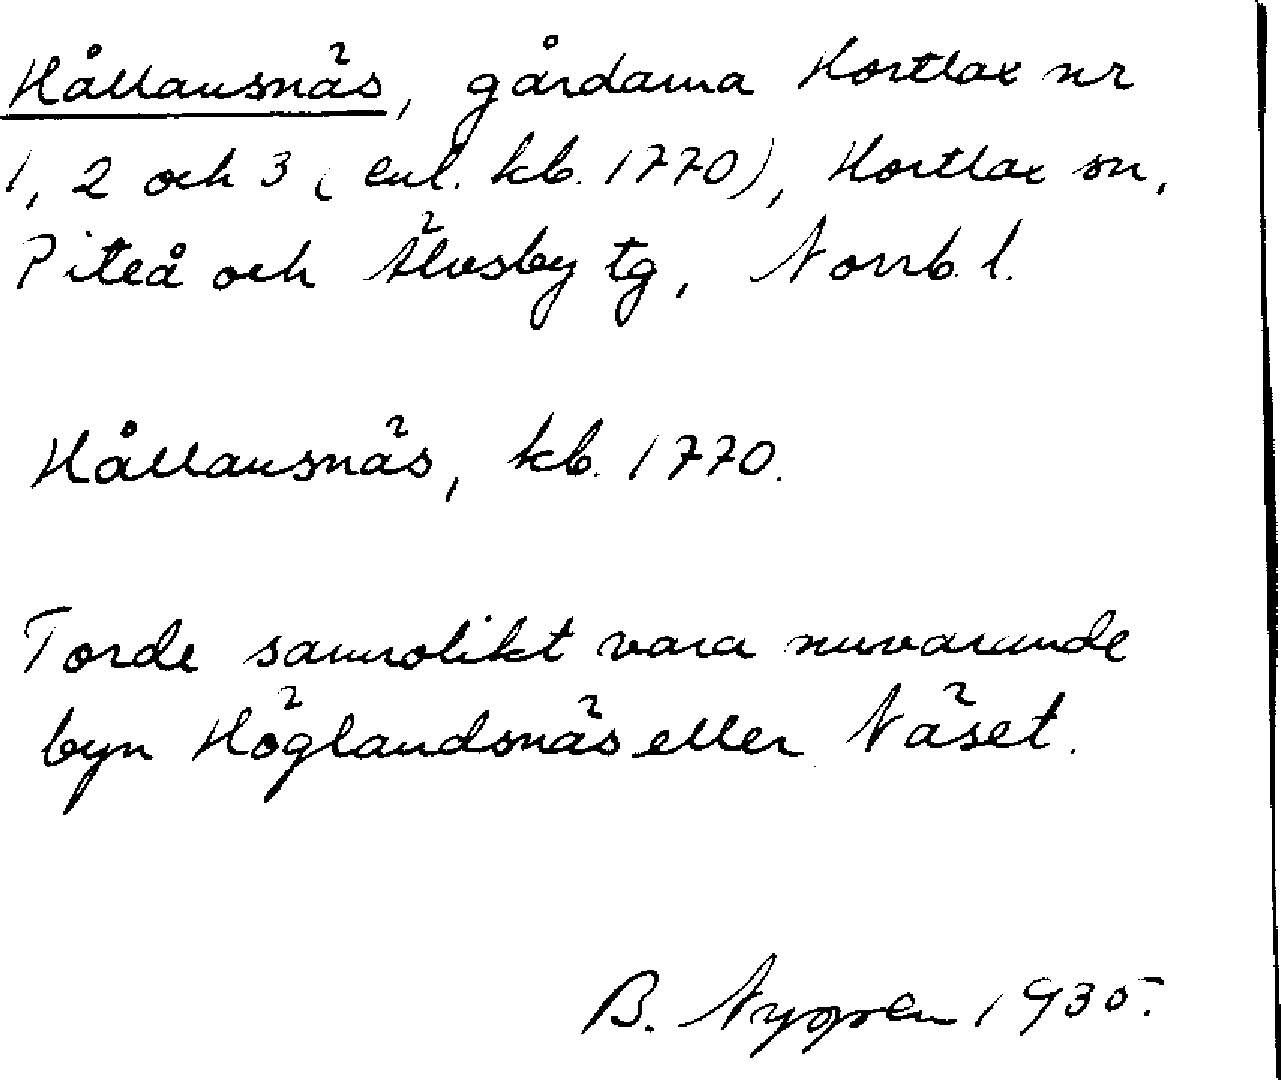 Hållansnäs, gårdarna Hortlax nr
1, 2 och 3 (enl. kb. 1770), Hortlax sn,
Piteå och Älvsby tg, Norrb. l.
Hållansnäs, kb. 1770.
Torde sannolikt vara nuvarande
byn Höglandsnäs eller Näset.
B. Nygren 1935.